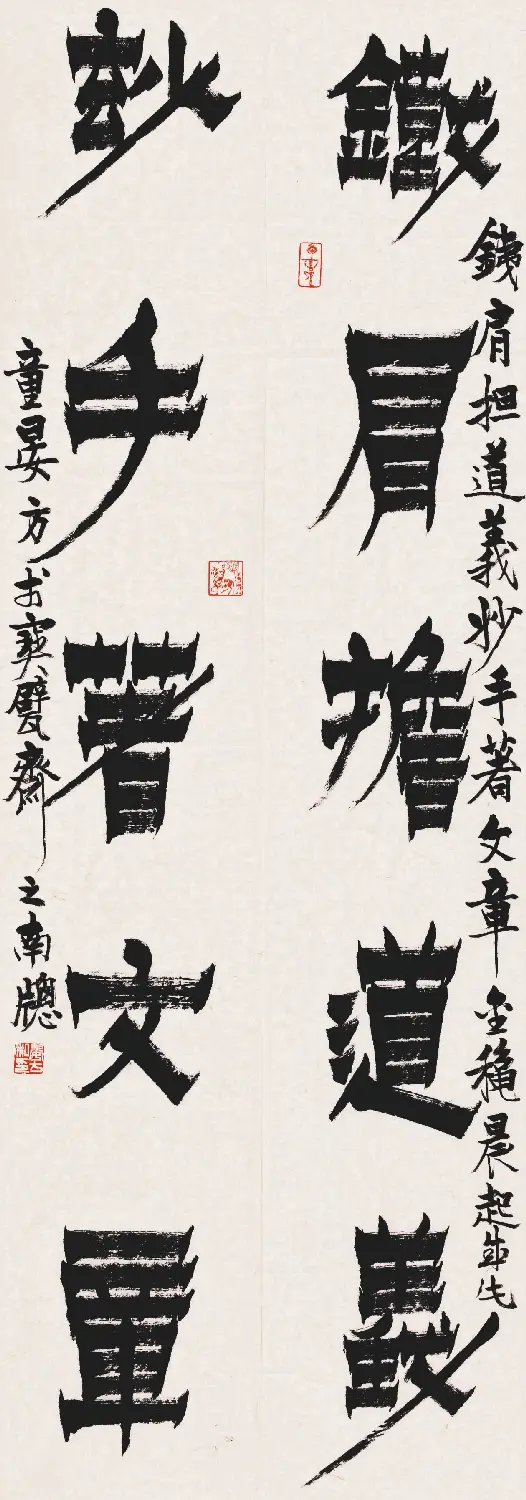 鐵肩擔道義
銕肩担道義妙手著文章金穐晨起
玅手著文章
童晏方於寶甓齋之南牕